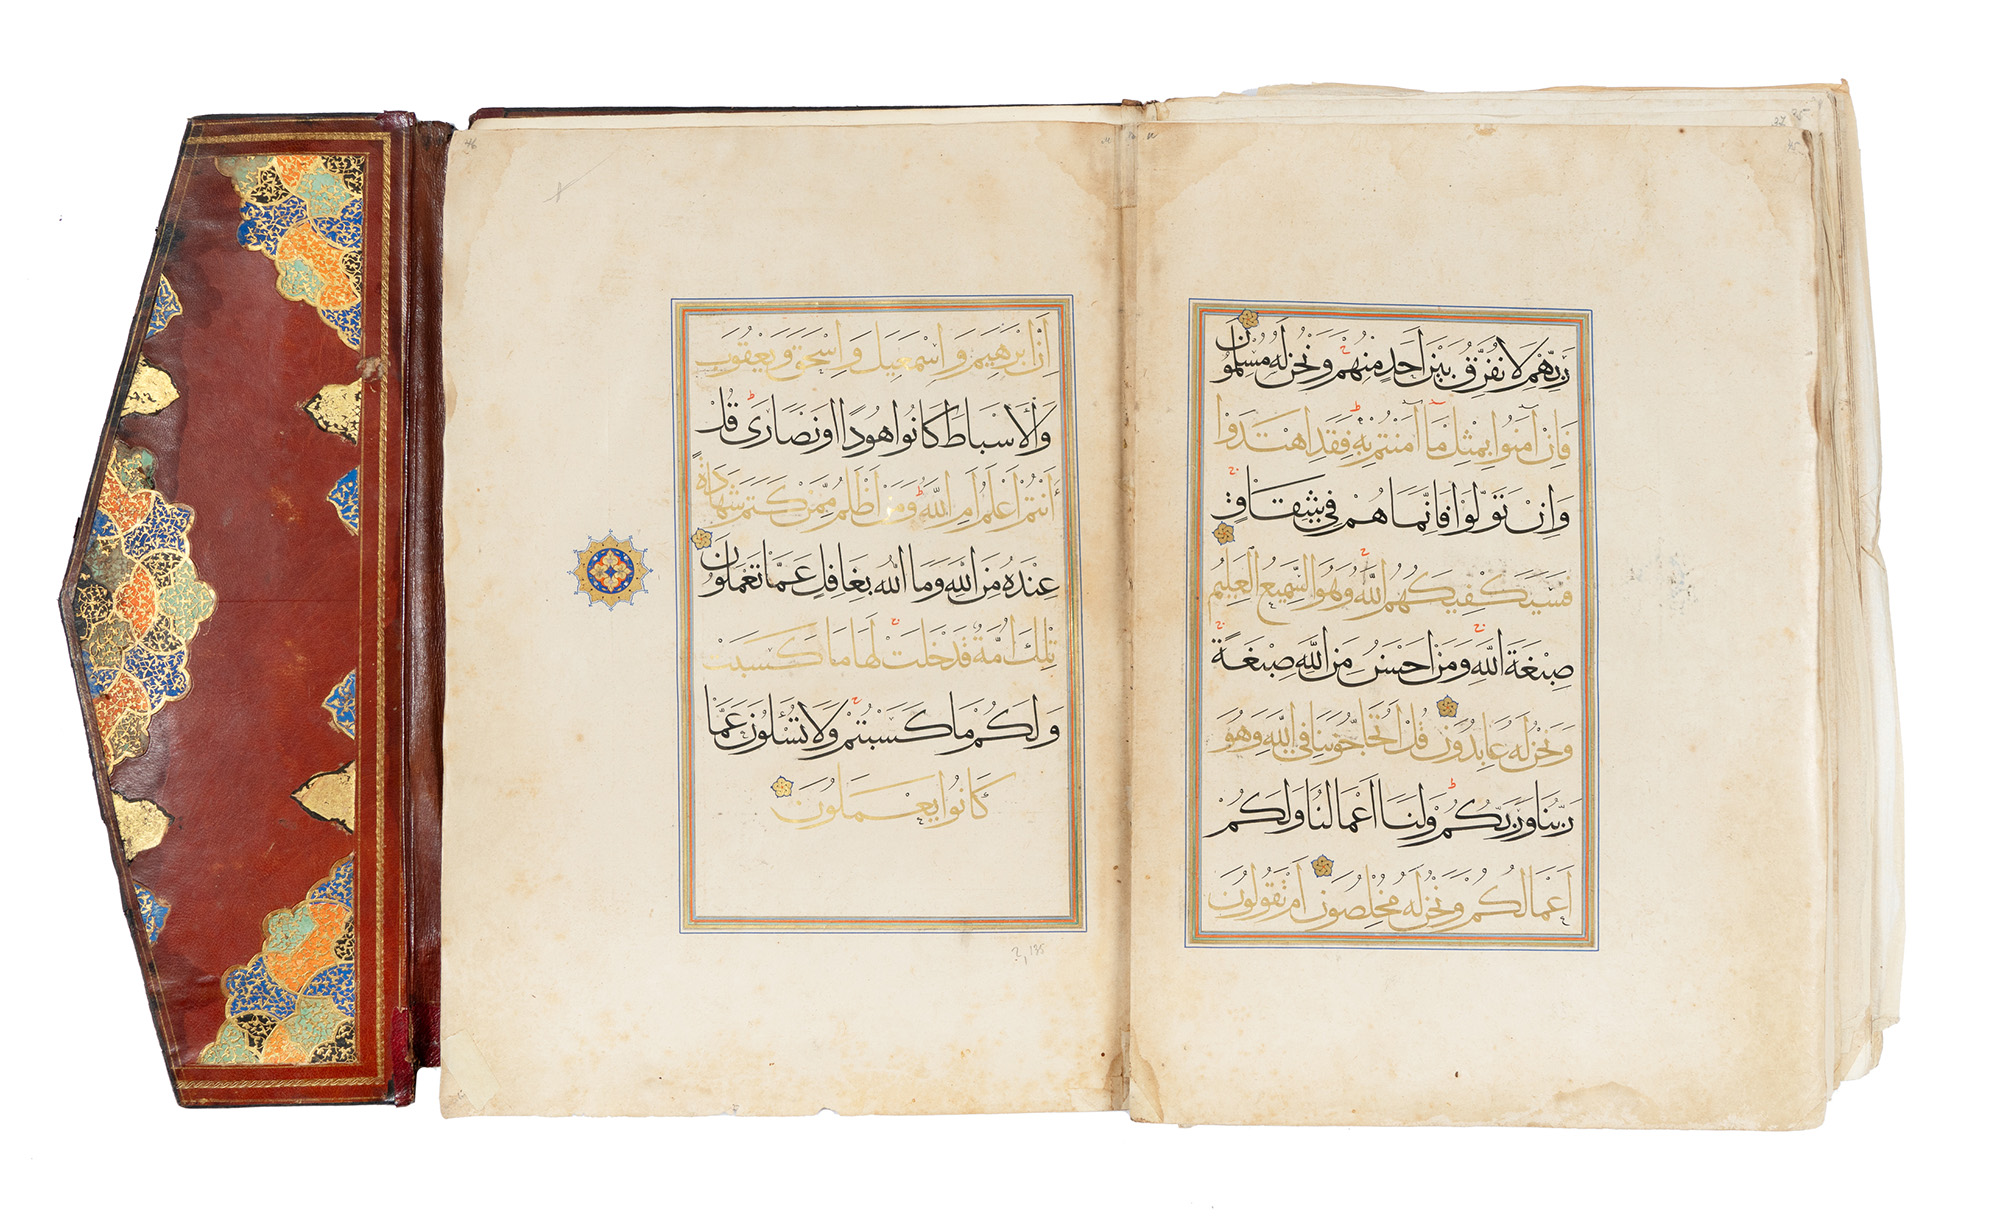 رَبِّهِمْ لَا نُفَرِّقُ بَيْنَ اَحَدٍ مِنْهُمْ وَنَحْنُ لَهُ مُسْلِمُونَ
فَاِنْ اٰمَنُوا بِمِثْلِ مَا اٰمَنْتُمْ بِهِ فَقَدِ اهْتَدَوْا
وَاِنْ تَوَلَّوْا فَاِنَّمَا هُمْ فِي شِقَاقٍ
فَسَيَكْفِيكَهُمُ اللّٰهُ وَهُوَ السَّمِيعُ الْعَلِيمُ
صِبْغَةَ اللّٰهِ وَمَنْ اَحْسَنُ مِنَ اللّٰهِ صِبْغَةً
وَنَحْنُ لَهُ عَابِدُونَ قُلْ اَتُحَاجُّونَنَا فِي اللّٰهِ وَهُوَ
رَبُّنَا وَرَبُّكُمْ وَلَنَا اَعْمَالُنَا وَلَكُمْ
اَعْمَالُكُمْ وَنَحْنُ لَهُ مُخْلِصُونَ اَمْ تَقُولُونَ
اَنَّ اِبْرٰهِيمَ وَاِسْمٰعِيلَ وَاِسْحٰقَ وَيَعْقُوبَ
وَالْاَسْبَاطَ كَانُوا هُودًا اَوْ نَصَارَى قُلْ
ءَاَنْتُمْ اَعْلَمُ اَمِ اللّٰهُ وَمَنْ اَظْلَمُ مِمَّنْ كَتَمَ شَهَادَةً
عِنْدَهُ مِنَ اللّٰهِ وَمَا اللّٰهُ بِغَافِلٍ عَمَّا تَعْمَلُونَ
تِلْكَ اُمَّةٌ قَدْ خَلَتْ لَهَا مَا كَسَبَتْ
وَلَكُمْ مَا كَسَبْتُمْ وَلَا تُسْـَٔلُونَ عَمَّا
كَانُوا يَعْمَلُونَ
46
135